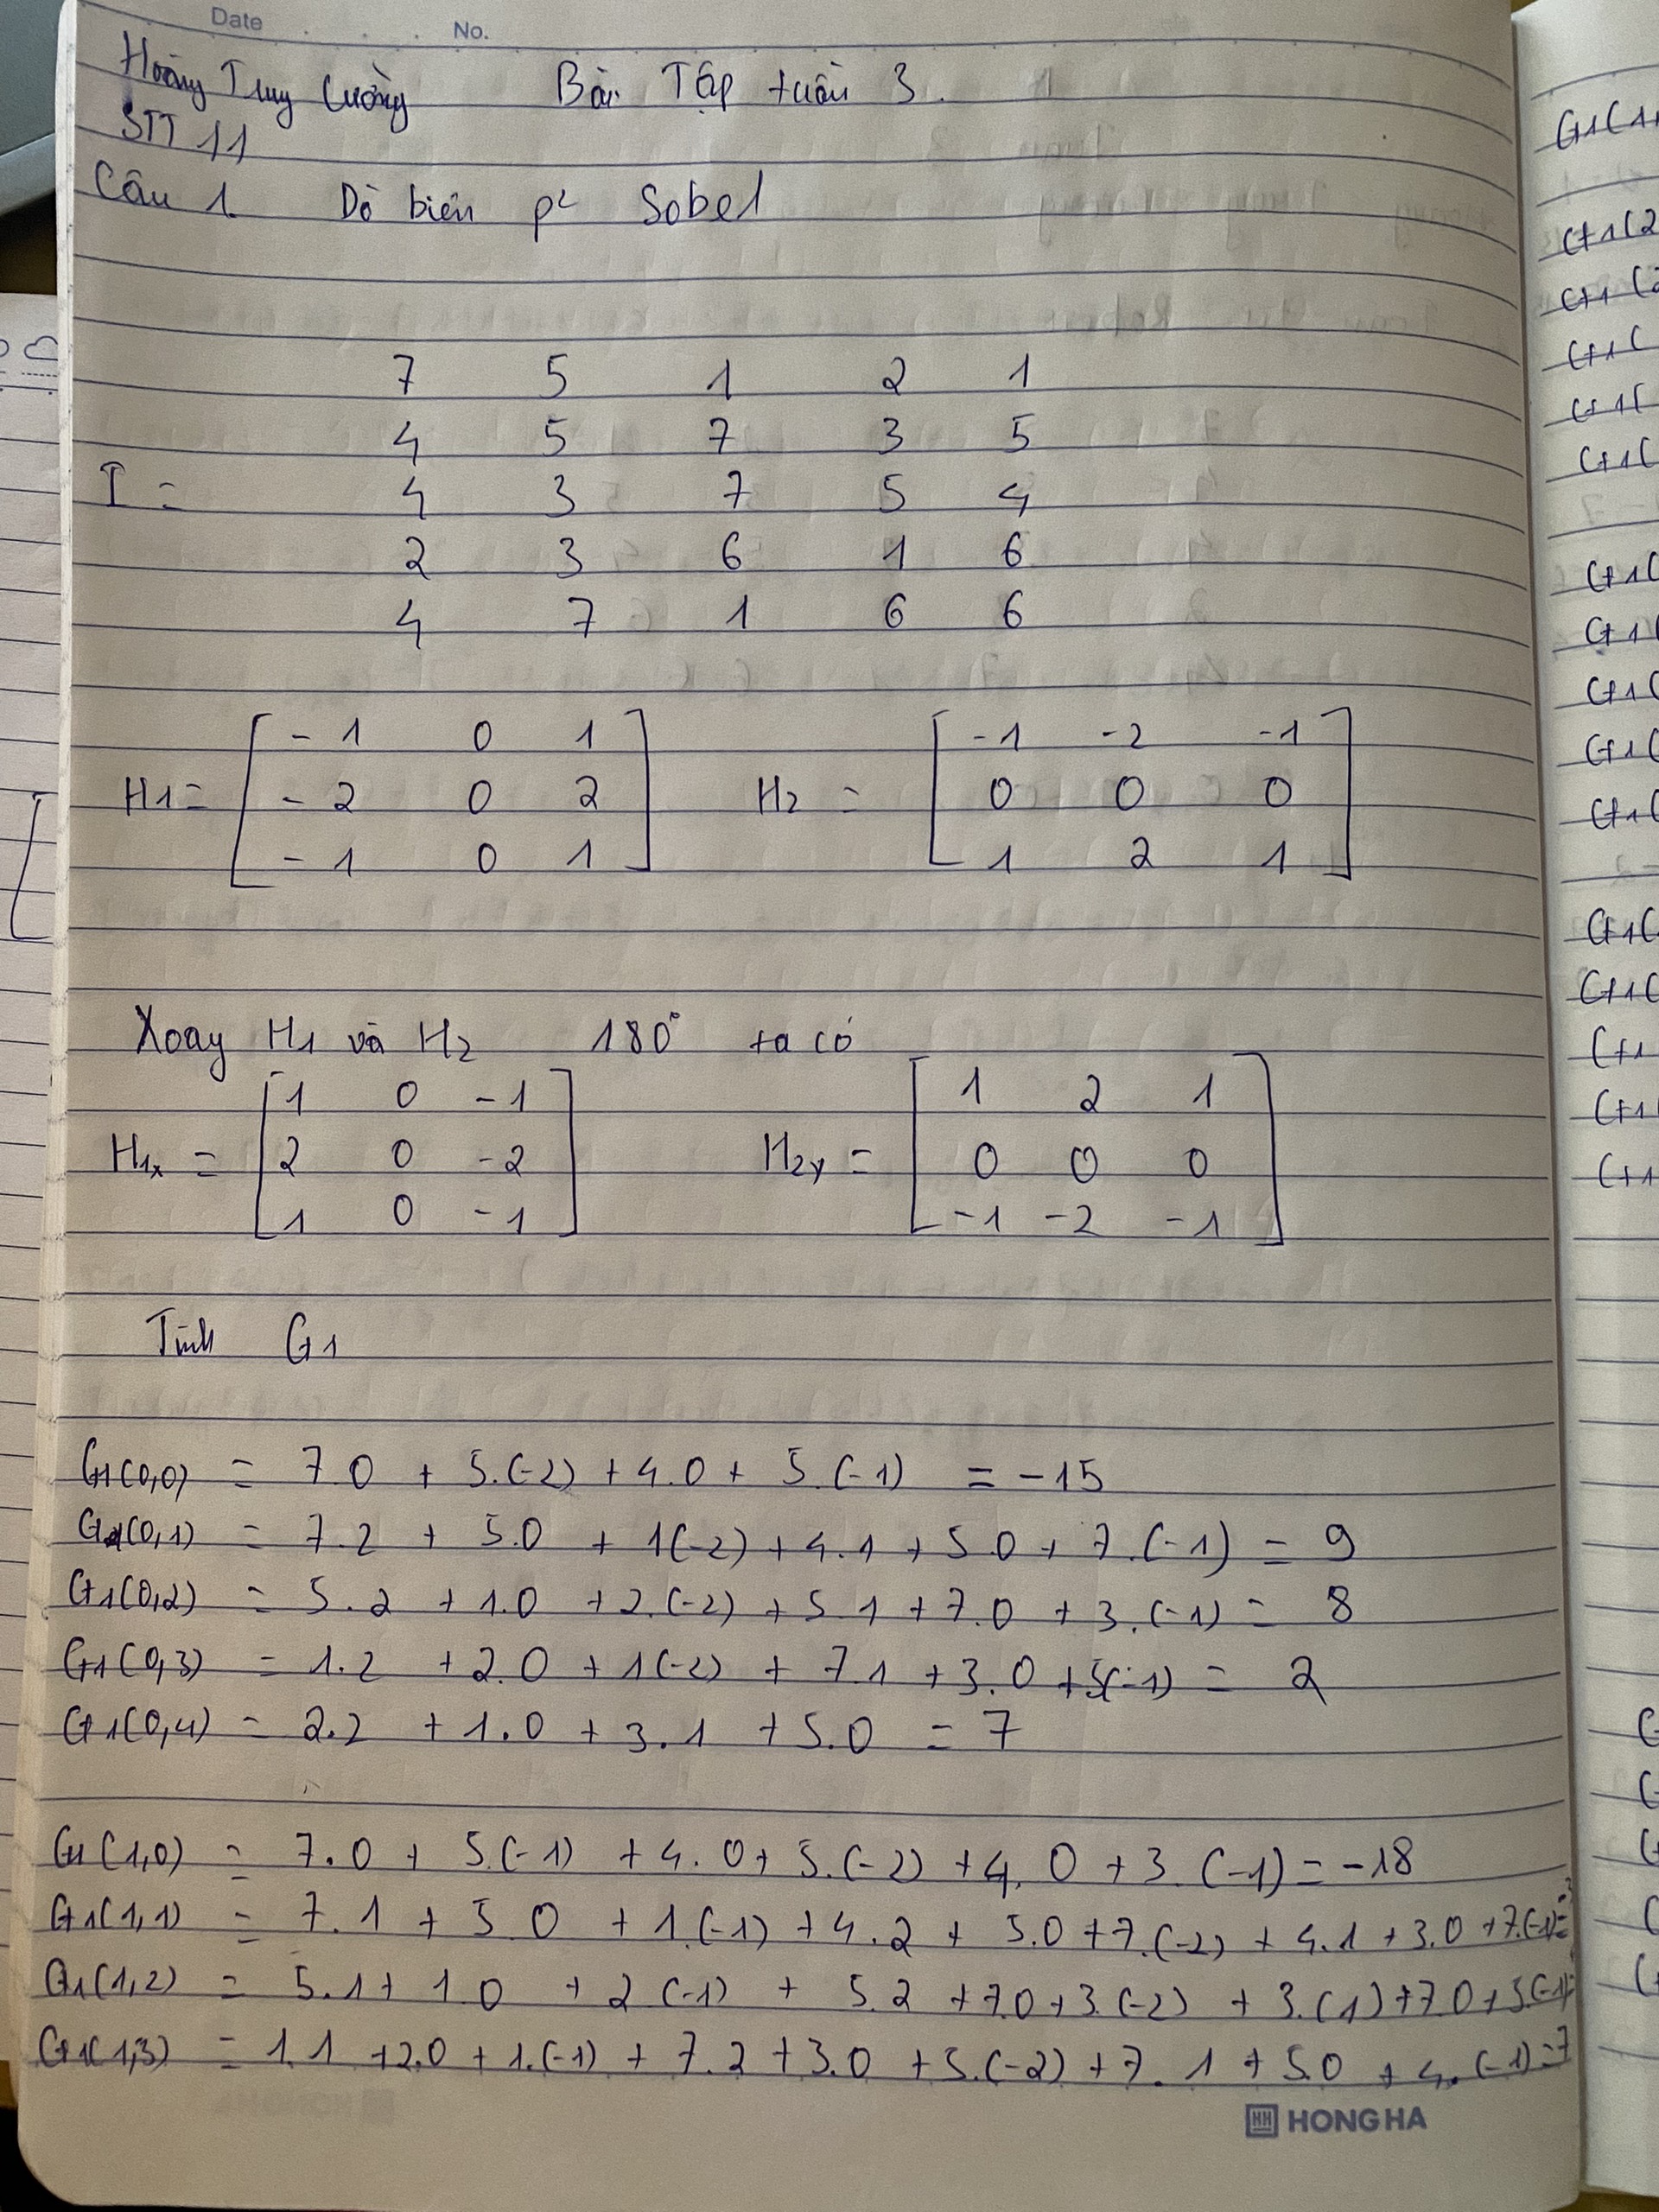 Date No.
Hoàng Truy Cường Bài Tập tuần 3.
STT 11
Câu 1. Dò biên p² Sobel
7 5 1 2 1
4 5 7 3 5
I = 4 3 7 5 4
2 3 6 1 6
4 7 1 6 6
-1 0 1 -1 -2 -1
H1 = -2 0 2 H2 = 0 0 0
-1 0 1 1 2 1
Xoay H1 và H2 180° ta có
1 0 -1 1 2 1
H1x = 2 0 -2 H2y = 0 0 0
1 0 -1 -1 -2 -1
Tính G1
G1(0,0) = 7.0 + 5.(-2) + 4.0 + 5.(-1) = -15
G1(0,1) = 7.2 + 5.0 + 1(-2) + 4.1 + 5.0 + 7.(-1) = 9
G1(0,2) = 5.2 + 1.0 + 2.(-2) + 5.1 + 7.0 + 3.(-1) = 8
G1(0,3) = 1.2 + 2.0 + 1(-2) + 7.1 + 3.0 + 5(-1) = 2
G1(0,4) = 2.2 + 1.0 + 3.1 + 5.0 = 7
G1(1,0) = 7.0 + 5.(-1) + 4.0 + 5.(-2) + 4.0 + 3.(-1) = -18
G1(1,1) = 7.1 + 5.0 + 1.(-1) + 4.2 + 5.0 + 7.(-2) + 4.1 + 3.0 + 7.(-1) =
G1(1,2) = 5.1 + 1.0 + 2(-1) + 5.2 + 7.0 + 3.(-2) + 3.(1) + 7.0 + 5.(-1)
G1(1,3) = 1.1 + 2.0 + 1.(-1) + 7.2 + 3.0 + 5.(-2) + 7.1 + 5.0 + 4.(-1) = 7
HONG HA